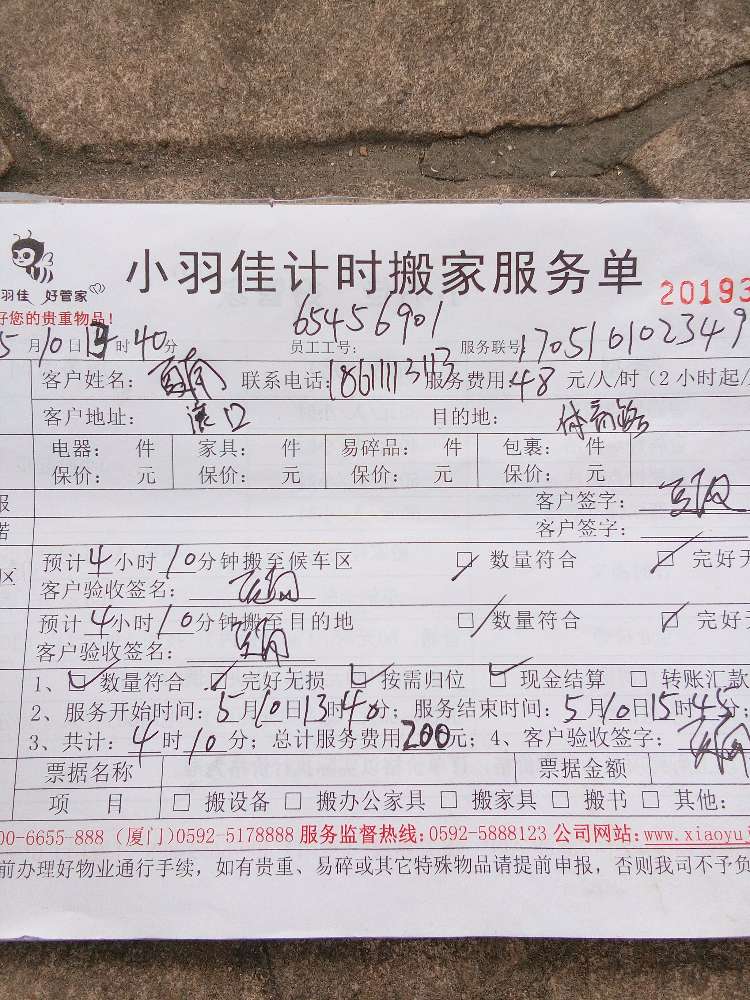 小羽佳计时搬家服务单
羽佳 好管家
好您的贵重物品!
20193
65456901
5月10日13时40分 员工工号: 服务联号:170516102349
客户姓名: 联系电话:18611113113 服务费用:48元/人/时(2小时起/
客户地址: 目的地: 体育路
电器: 件 家具: 件 易碎品: 件 包裹: 件
保价: 元 保价: 元 保价: 元 保价: 元
报 客户签字:
诺 客户签字:
区 预计4小时10分钟搬至候车区 □数量符合 □完好无
客户验收签名:
预计4小时10分钟搬至目的地 □数量符合 □完好无
客户验收签名:
1、□数量符合 □完好无损 □按需归位 □现金结算 □转账汇款
2、服务开始时间:5月10日13时40分; 服务结束时间:5月10日15时45分;
3、共计:4时10分; 总计服务费用200元; 4、客户验收签字:
票据名称 票据金额
项 目 □搬设备 □搬办公家具 □搬家具 □搬书 □其他:
00-6655-888 (厦门)0592-5178888 服务监督热线:0592-5888123 公司网站:www.xiaoyu
前办理好物业通行手续，如有贵重、易碎或其它特殊物品请提前申报，否则我司不予负